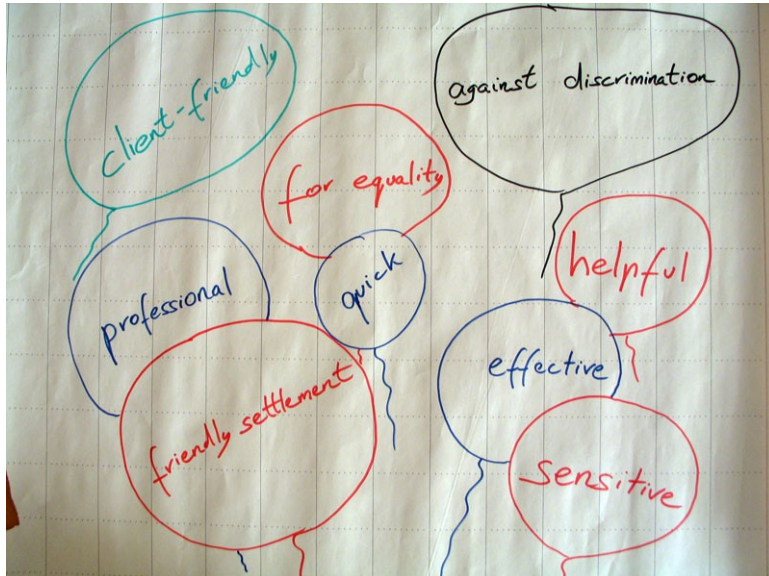 client-friendly
against discrimination
for equality
helpful
professional
quick
effective
friendly settlement
sensitive